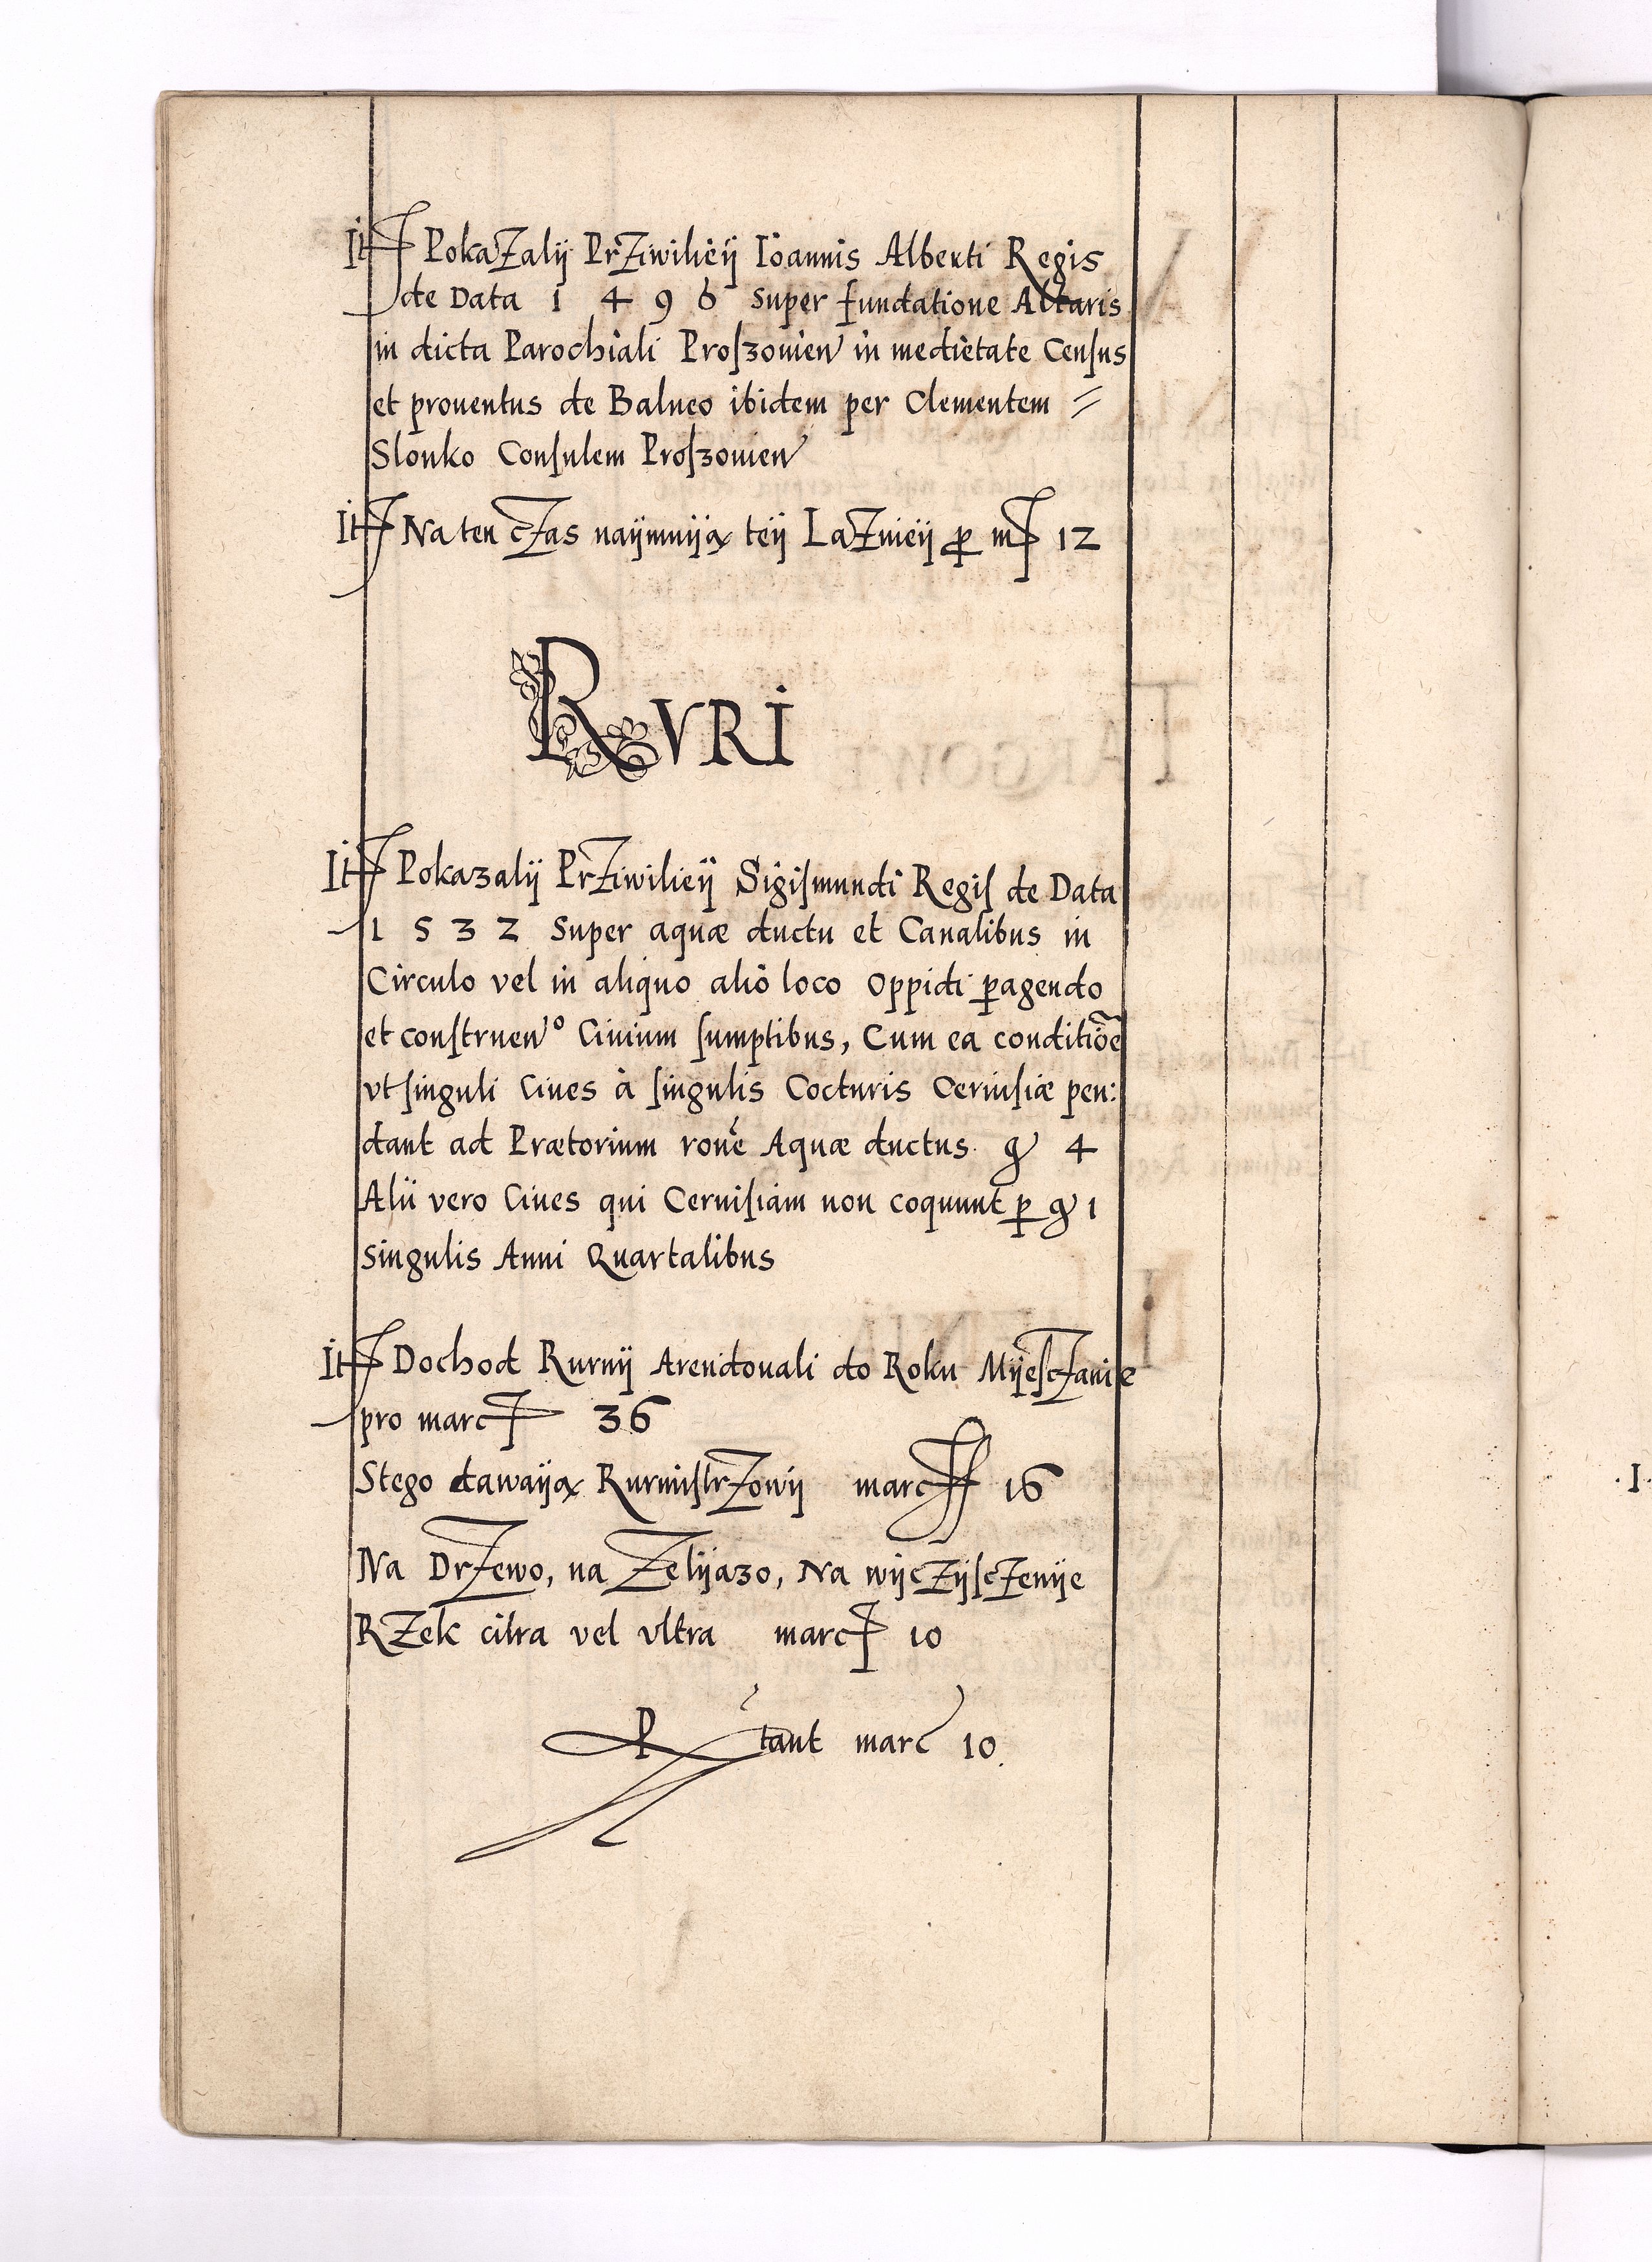 It Pokazalÿ Prziwilieÿ Ioannis Alberti Regis
de Data 1 4 9 6 super fundatione Altaris
in dicta Parochiali Proſzouien in medietate Cenſus
et prouentus de Balneo ibidem per Clementem =
Slonko Conſulem Proſzouien
It Na ten cżas naÿmuÿą teÿ Laznieÿ ꝓ m 12
RVRI
It Pokazalÿ Prziwilieÿ Sigiſmundi Regiſ de Data
1 5 3 2 super aquæ ductu et Canalibus in
Circulo vel in aliquo alio loco oppidi ꝑagendo
et conſtruenº Ciuium ſumptibus, Cum ea conditiõe
vt ſinguli Ciues à ſingulis Cocturis Ceruiſiæ pen:
dant ad Prætorium roné Aquæ ductus. g 4
Alii vero Ciues qui Ceruiſiam non coquunt ꝑ g 1
singulis Anni Quartalibus
It Dochod Rurnÿ Arendouali do Roku Mÿeſczanie
pro marc 36
Stego dawaÿą Rurmiſtrzowÿ marc 16
Na Drzewo, na Zelÿazo, Na wÿczÿſczenÿe
Rzek citra vel vltra marc 10
R tant marc 10.
.I.